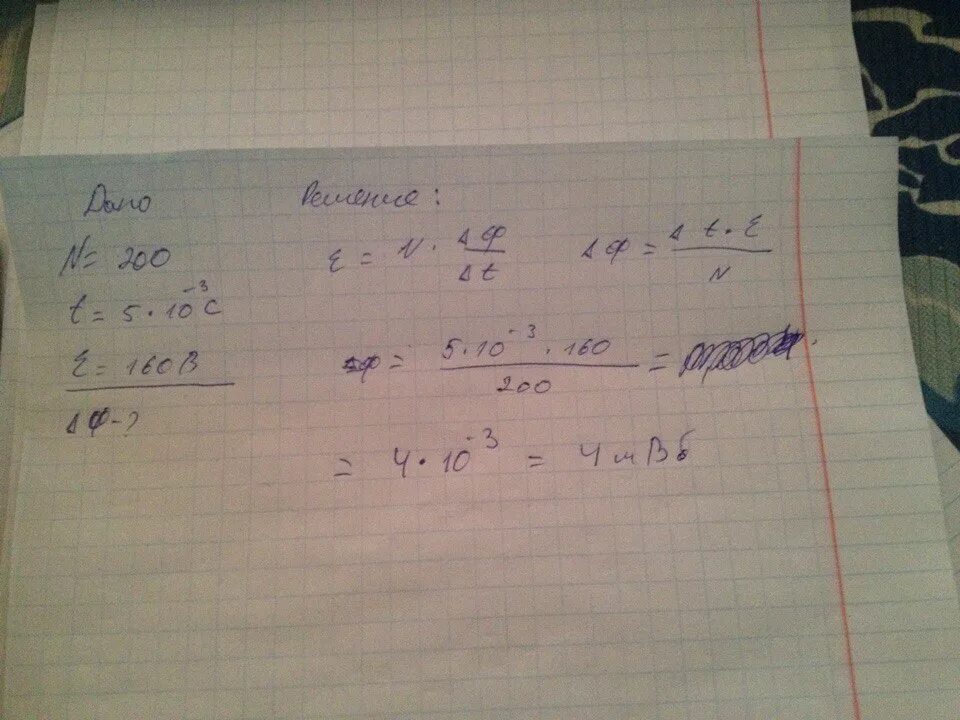 Дано
N = 200
t = 5 · 10⁻³ С
ℰ = 160 В
ΔФ - ?
Решение :
ℰ = N · ΔФ/Δt ΔФ = Δt · ℰ/N
ΔФ = 5 · 10⁻³ · 160/200 =
= 4 · 10⁻³ = 4 мВб